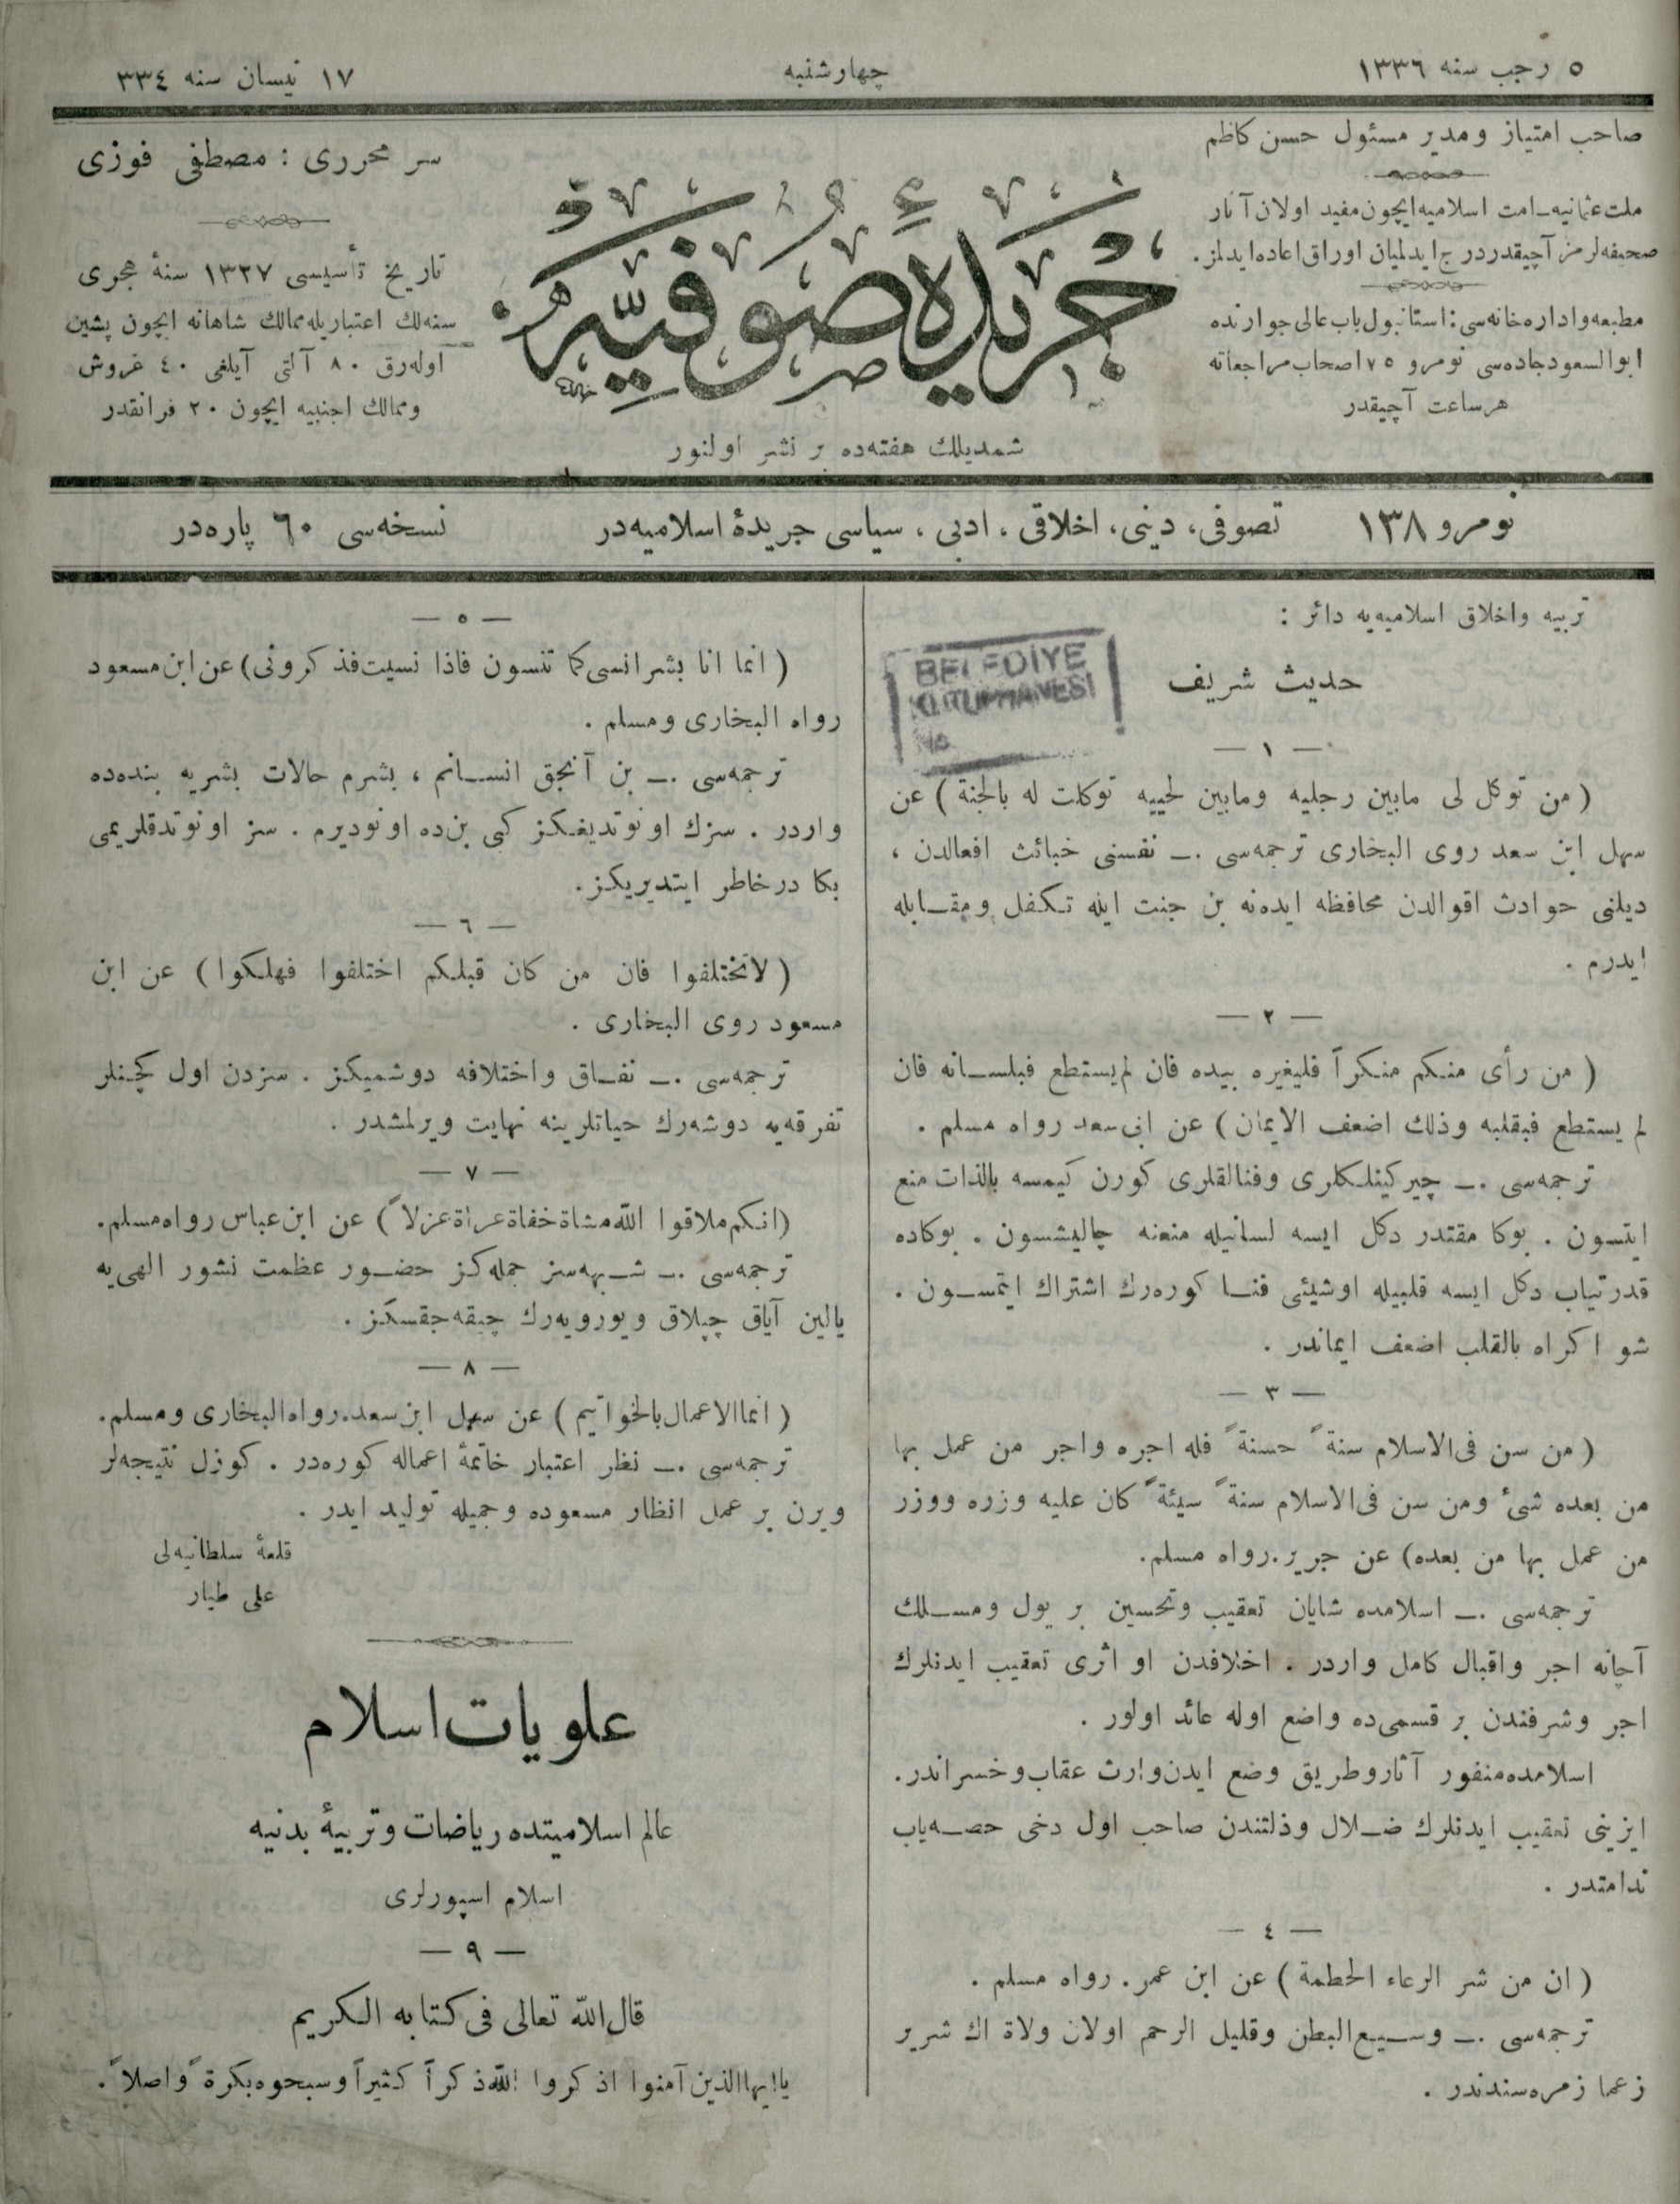 ٥ رجب سنه ١٣٣٦
چهارشنبه
١٧ نیسان سنه ٣٣٤
صاحب امتیاز و مدیر مسئول حسن کاظم
ملت عثمانیه ـ امت اسلامیه ایچون مفید اولان آثار
صحیفه‌لرمز آچیقدر درج ایدلمیان اوراق اعاده ایدلمز.
مطبعه و اداره خانه‌سی : استانبول باب عالی جوارنده
ابوالسعود جاده‌سی نومرو ٧٥ اصحاب مراجعاته
هر ساعت آچیقدر
جریدهٔ صوفیه
شمدیلك هفته‌ده بر نشر اولنور
سر محرری : مصطفی فوزی
تاریخ تأسیسی ١٣٢٧ سنهٔ هجری
سنه‌لك اعتباریله ممالك شاهانه ایچون پشین
اوله‌رق ٨٠ آلتی آیلغی ٤٠ غروش
وممالك اجنبیه ایچون ٢٠ فرانقدر
نومرو ١٣٨
تصوفی، دینی، اخلاقی، ادبی، سیاسی جریدهٔ اسلامیه‌در
نسخه‌سی ٦٠ پاره‌در
تربیه واخلاق اسلامیه‌یه دائر :
BELEDİYE
KÜTÜPHANESİ
No
حدیث شریف
— ١ —
( من توكل لی مابین رجلیه ومابین لحییه توكلت له بالجنة ) عن
سهل ابن سعد روی البخاری ترجمه‌سی .ـ نفسنی خبائث افعالدن ،
دیلنی حوادث اقوالدن محافظه ایده‌نه بن جنت ایله تكفل ومقابله
ایدرم .
— ٢ —
( من رأی منكم منكراً فلیغیره بیده فان لم یستطع فبلسانه فان
لم یستطع فبقلبه وذلك اضعف الایمان ) عن ابی سعد رواه مسلم .
ترجمه‌سی .ـ چیركینلكلری وفنالقلری كورن كیمسه بالذات منع
ایتسون . بوكا مقتدر دكل ایسه لسانیله منعنه چالیشسون . بوكاده
قدرتیاب دكل ایسه قلبیله اوشیئی فنا كوره‌رك اشتراك ایتمسون .
شو اكراه بالقلب اضعف ایماندر .
— ٣ —
( من سن فی الاسلام سنة ً حسنة ً فله اجره واجر من عمل بها
من بعده شیٔ ومن سن فی الاسلام سنة ً سیئة ً كان علیه وزره ووزر
من عمل بها من بعده) عن جریر. رواه مسلم.
ترجمه‌سی .ـ اسلامده شایان تعقیب وتحسین بر یول ومسلك
آچانه اجر واقبال كامل واردر . اخلافدن او اثری تعقیب ایدنلرك
اجر وشرفندن بر قسمی‌ده واضع اوله عائد اولور .
اسلامده منفور آثار وطریق وضع ایدن وارث عقاب وخسراندر.
ایزینی تعقیب ایدنلرك ضلال وذلتندن صاحب اول دخی حصه‌یاب
ندامتدر .
— ٤ —
( ان من شر الرعاء الحطمة ) عن ابن عمر. رواه مسلم .
ترجمه‌سی .ـ وسیع البطن وقلیل الرحم اولان ولاة اك شریر
زعما زمره‌سندندر .
— ٥ —
( انما انا بشر انسی كما تنسون فاذا نسیت فذكرونی) عن ابن مسعود
رواه البخاری ومسلم .
ترجمه‌سی .ـ بن آنجق انسانم ، بشرم حالات بشریه بنده‌ده
واردر . سزك اونوتدیغكز كبی بن‌ده اونودیرم . سز اونوتدقلریمی
بكا درخاطر ایتدیریكز.
— ٦ —
( لاتختلفوا فان من كان قبلكم اختلفوا فهلكوا ) عن ابن
مسعود روی البخاری .
ترجمه‌سی .ـ نفاق واختلافه دوشمیكز . سزدن اول كچنلر
تفرقه‌یه دوشه‌رك حیاتلرینه نهایت ویرلمشدر .
— ٧ —
(انكم ملاقوا الله مشاة خفاة عراة عزلا ً) عن ابن عباس رواه مسلم.
ترجمه‌سی .ـ شبهه‌سز جمله‌كز حضور عظمت نشور الهی‌یه
یالین آیاق چپلاق ویورویه‌رك چیقه‌جقسكز .
— ٨ —
( انما الاعمال بالخواتیم ) عن سهل ابن سعد. رواه البخاری ومسلم.
ترجمه‌سی .ـ نظر اعتبار خاتمهٔ اعماله كوره‌در . كوزل نتیجه‌لر
ویرن بر عمل انظار مسعوده وجمیله تولید ایدر .
قلعهٔ سلطانیه‌لی
علی طیار
علویات اسلام
عالم اسلامیتده ریاضات وتربیهٔ بدنیه
اسلام اسپورلری
— ٩ —
قال الله تعالی فی كتابه الكریم
یا ایها الذین آمنوا اذكروا الله ذكراً كثیراً وسبحوه بكرة ً واصلا ً.